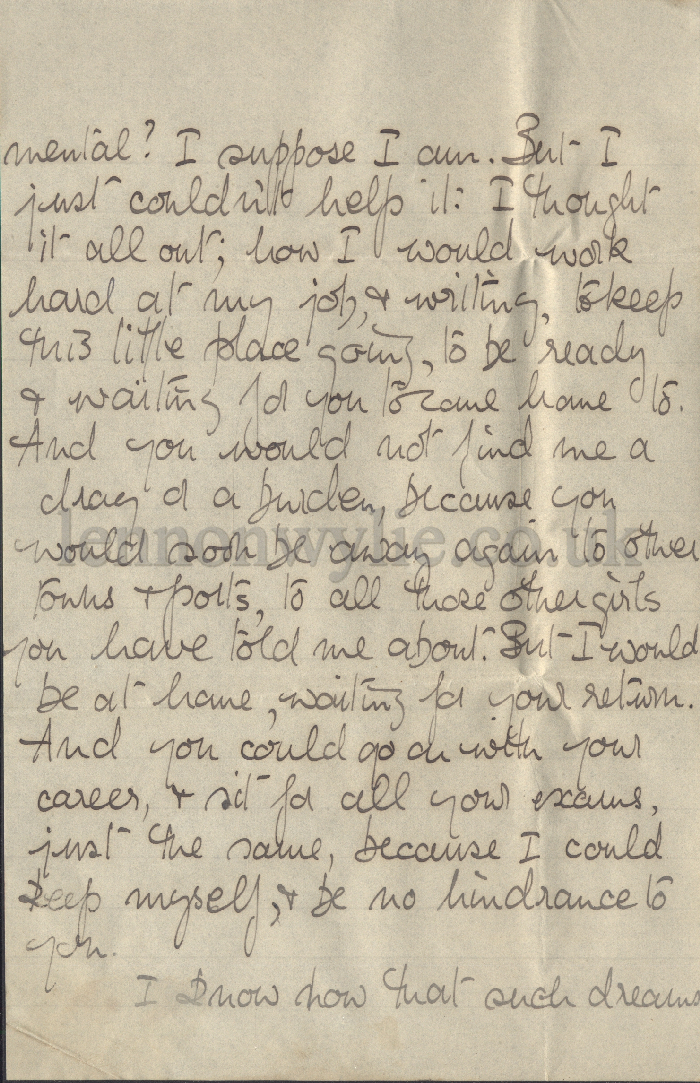 mental? I suppose I am. But I
just couldn't help it: I thought
it all out; how I would work
hard at my job, & writing, to keep
this little place going, to be ready
& waiting for you to come home to.
And you would not find me a
drag or a burden, because you
would soon be away again to other
towns & ports, to all those other girls
you have told me about. But I would
be at home, waiting for your return.
And you could go on with your
career, & sit for all your exams,
just the same, because I could
keep myself, & be no hindrance to
you.
I know now that such dreams
lennonwylie.co.uk